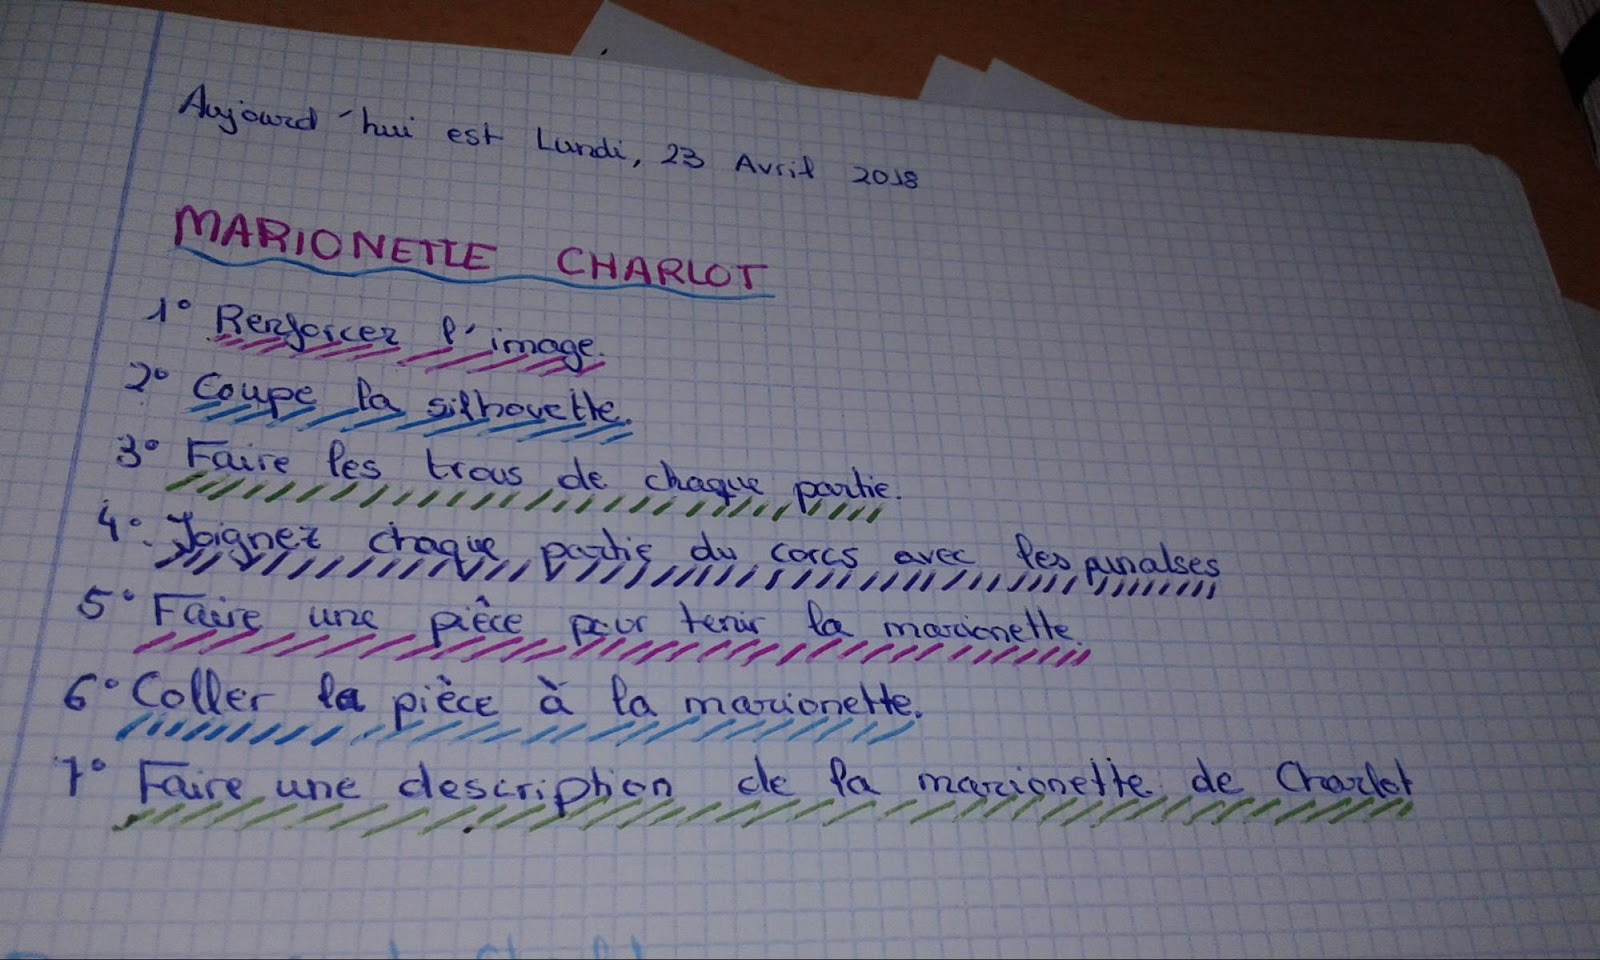 Aujourd'hui est Lundi, 23 Avril 2018
MARIONETTE CHARLOT
1° Renforcez l'image.
2° Coupe la silhouette.
3° Faire les trous de chaque partie.
4° Joignez chaque partie du corcs avec les punalses
5° Faire une pièce pour tenir la marionette.
6° Coller la pièce à la marionette.
7° Faire une description de la marionette de Charlot